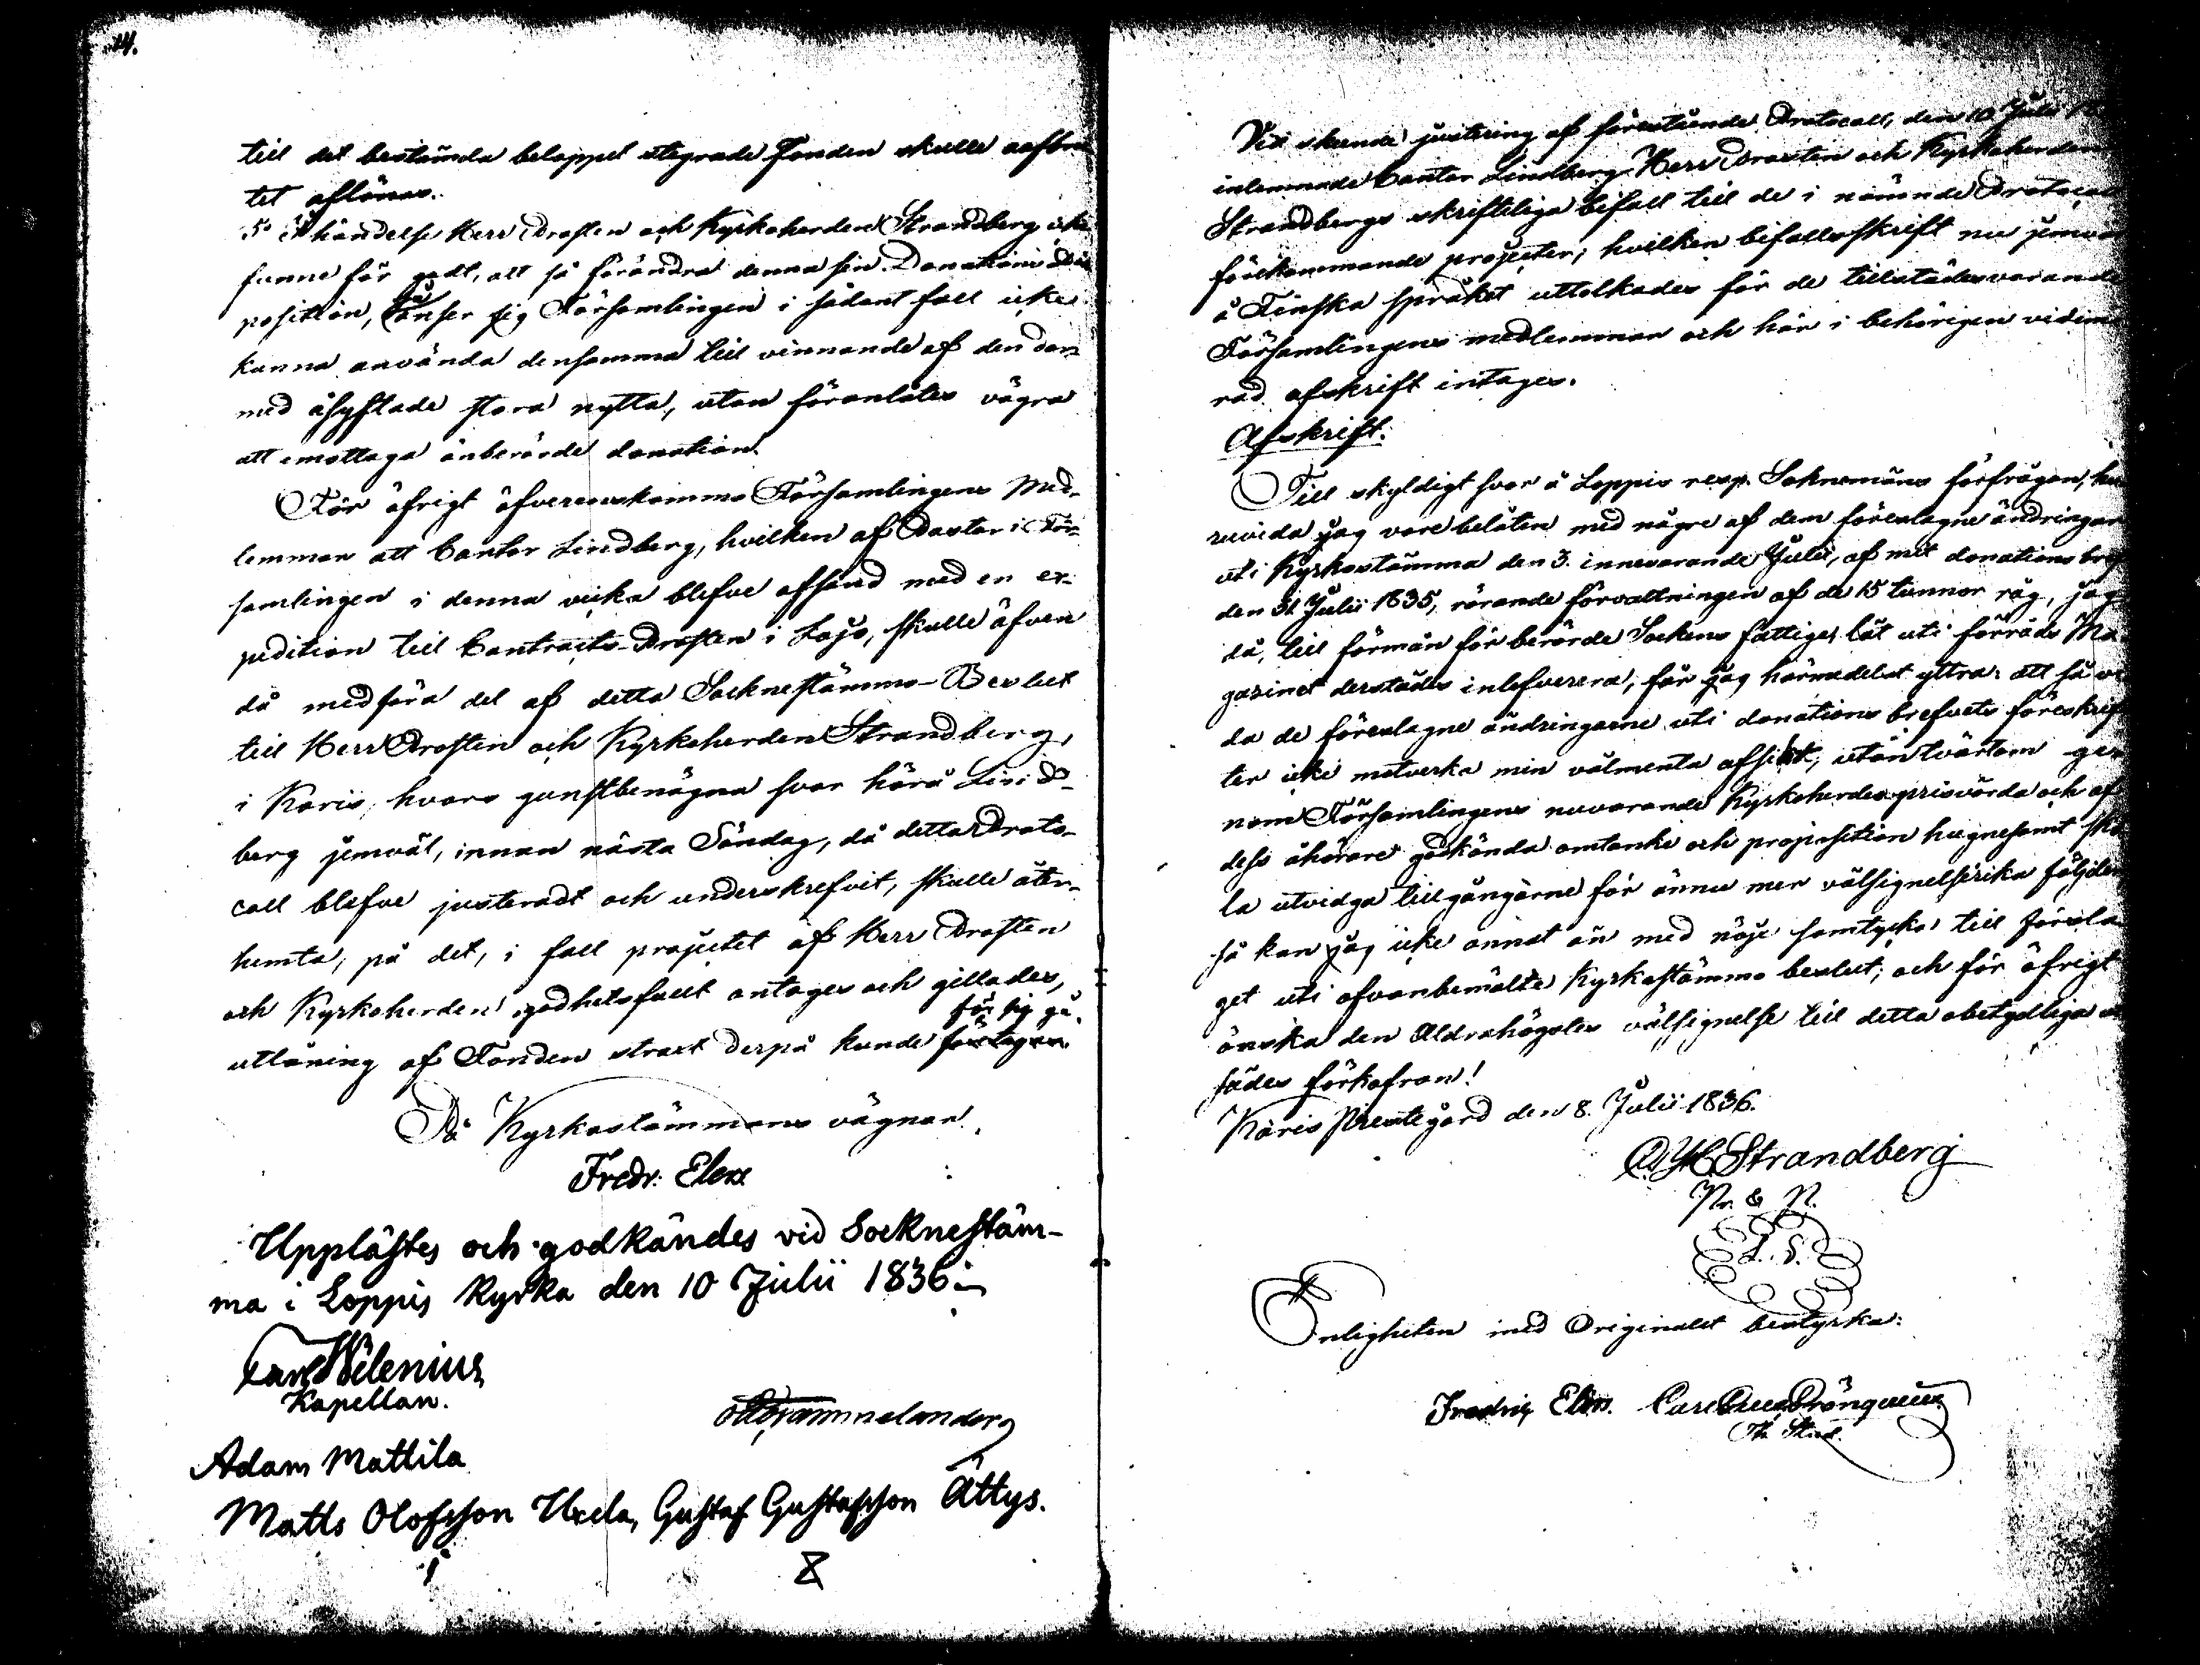 14.
till det bestämda beloppet stegrade Fonden skulle oafbru
tet aflönas.
5° i händelse Herr Prosten och Kyrkoherden Strandberg icke
funne för godt, att så förändra denna sin Donations dis
position, så anser sig Församlingen i sådant fall icke
kunna använda densamma till vinnande af den der
med åsyftade stora nytta, utan föranlåtes vägra
att emottaga önberörde donation.
För öfrigt öfverenskommo Församlingens Med-
lemmar att Cantor Lindberg, hvilken af Pastor i För-
samlingen i denna vicka blefve afsänd med en ex-
pedition till Contracts-Prosten i Lojo, skulle äfven
då medföra del af detta Socknestämmo-Beslut
till Herr Prosten och Kyrkoherden Strandberg,
i Karis, hvars gunstbenägna svar härå Lind-
berg jemväl, innan nästa Söndag, då detta Proto-
coll blefve justeradt och underskrefvit, skulle åter-
hemta, på det, i fall projectet af Herr Prosten
och Kyrkoherden godhetsfullt antages och gillades,
för sig gå.
utlåning af Fonden straxt derpå kunde företagas
På Kyrkostämmans vägnar.
Fredr: Elers
Upplästes och godkändes vid Socknestäm-
ma i Loppis Kyrka den 10 Julii 1836:
Carl Helenius
Kapellan.
Adam Mattila
Matts Olofsson Uxela, Gustaf Gustafsson Ättys.
Vid skeende justering af förestående Protocoll, den 10 Julii
inlemnade Cantor Lindberg Herr Prosten och Kyrkoherden
Strandbergs skriftliga bifall till de i nämnde Protocoll
förekommande projecter; hvilken bifallsskrift nu jemväl
å Finska språket uttolkades för de tillstädesvarande
Församlingens medlemmar och här i behörigen vidime
rad afskrift intages.
Afskrift.
Till skyldigt svar å Loppis resp. Soknemäns förfrågan, hu
ruvida jag vore belåten med några af dem föreslagne ändringar
uti Kyrkostämma den 3. innevarande Julii, af mit donations bref
den 31. Julii 1835, rörande förvaltningen af de 15 tunnor råg, jag
då, till förmån för berörde Sockens fattige, låt uti förråds Ma
gazinet derstädes inlefverera; får jag härmedelst yttra: att så vi
da de föreslagne ändringarne uti donations brefvets föreskrif
ter icke motverka min välmenta afsikt, utan tvärtom ge
nom Församlingens nuvarande Kyrkoherdes prisvärda och af
dess åhörare godkända omtanke och proposition hugnesamt sku
la utvidga tillgångarne för ännu mer välsignelserika följder
så kan jag icke annat än med nöje samtycka till försla
get uti ofvanbemälte Kyrkostämmo beslut; och för öfrigt
önska den Aldrahögstes välsignelse till detta obetydliga ut
sädes förkofran!
Karis Prestegård den 8. Julii 1836.
Strandberg
Pr. & P.
L. S.
Enligheten med Originalet bestyrka:
Fredrig Elers. Carl
Th. Stud.